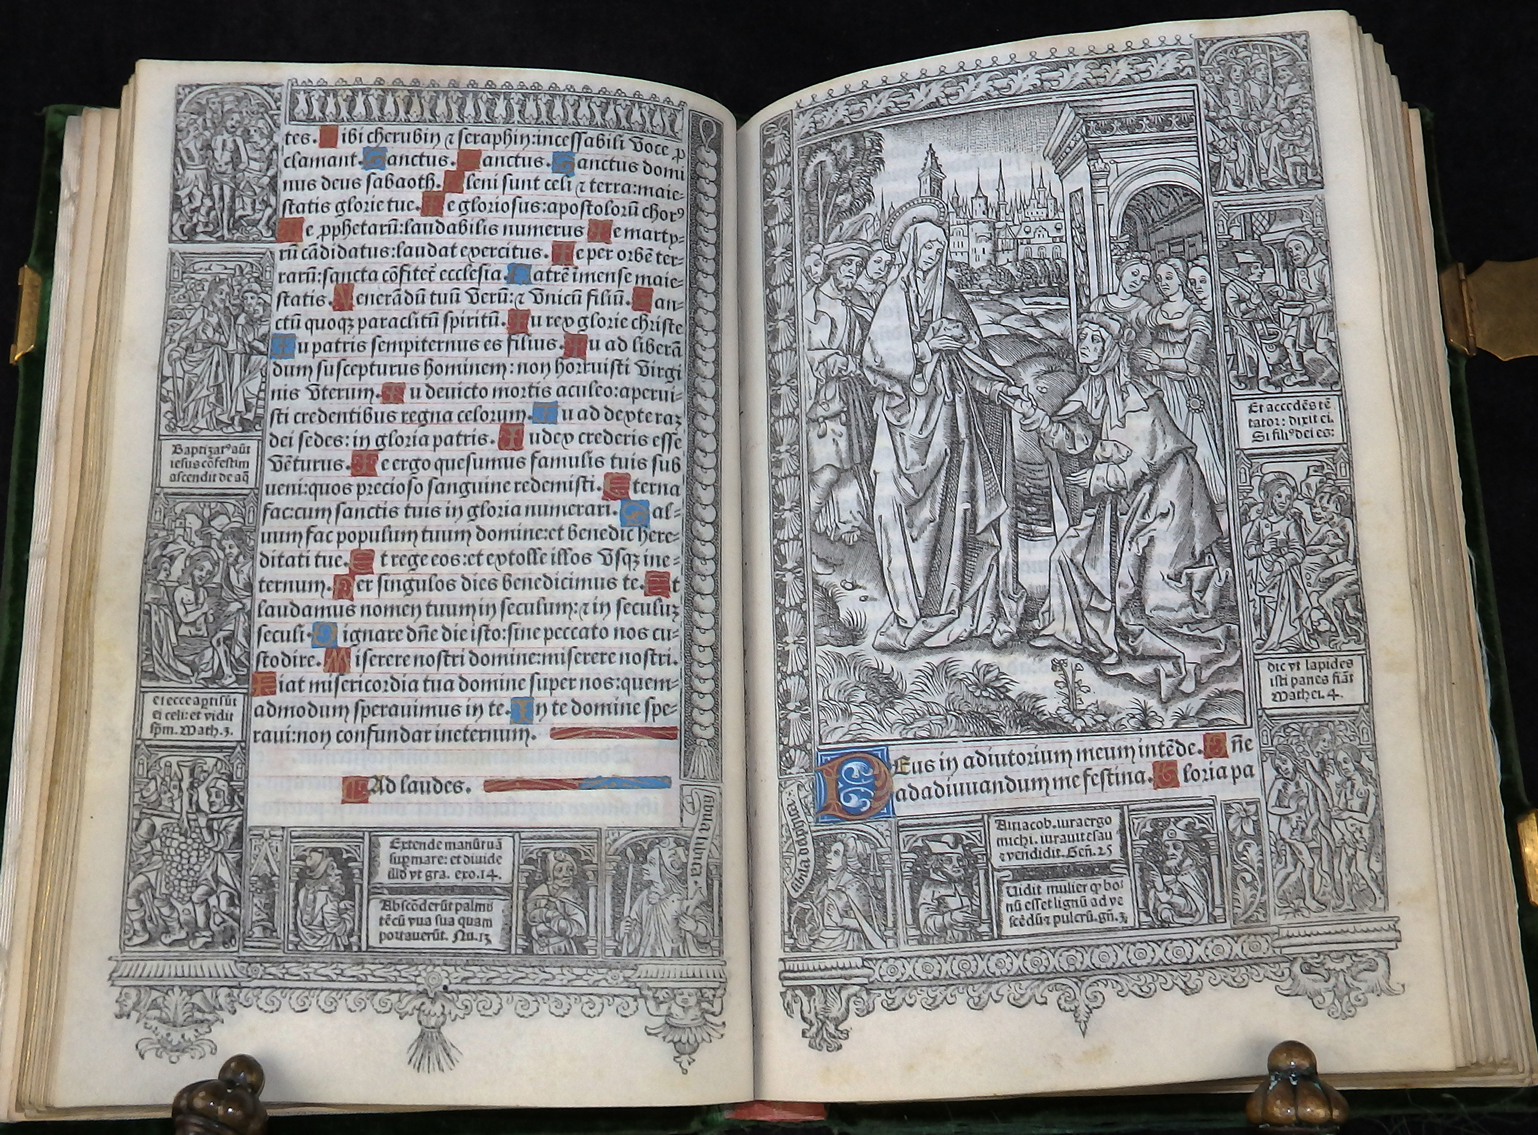 tes. Tibi cherubin ⁊ seraphin:incessabili voce p
clamant. Sanctus. Sanctus. Sanctus domi
nus deus sabaoth. Pleni sunt celi ⁊ terra:maie-
statis glorie tue. Te gloriosus:apostolorū chorꝰ
Te pphetarū:laudabilis numerus Te marty-
rū cādidatus:laudat exercitus. Te per orbē ter-
rarū:sancta cōfitet̄ ecclesia. Patrē īmense maie-
statis. Venerādū tuū verū:⁊ vnicū filiū. San-
ctū quoqꝫ paraclitū spiritū. Tu rex glorie christe
Tu patris sempiternus es filius. Tu ad liberā
dum suscepturus hominem:non horruisti virgi
nis vterum. Tu devicto mortis aculeo:aperui-
sti credentibus regna celorum. Tu ad dexteraꝫ
dei sedes:in gloria patris. Iudex crederis esse
vēturus. Te ergo quesumus famulis tuis sub
ueni:quos precioso sanguine redemisti. Eterna
fac:cum sanctis tuis in gloria numerari. Sal-
uum fac populum tuum domine:et benedic here-
ditati tue. Et rege eos:et extolle illos vsqꝫ ine-
ternum. Per singulos dies benedicimus te. Et
laudamus nomen tuum in seculum:⁊ in seculuꝫ
seculi. Dignare dn̄e die isto:sine peccato nos cu-
stodire. Miserere nostri domine:miserere nostri.
Fiat misericordia tua domine super nos:quem
admodum sperauimus in te. In te domine spe-
raui:non confundar ineternum.
Ad laudes.
Baptizatꝰ aūt
iesus cōfestim
ascendit de aq̄
et ecce ap̄ti sūt
ei celi: et vidit
sp̄m. Math.3.
Extende manū tuā
sup mare: et diuide
illd vt gra. exo.14.
Abscōderūt palmi
tē cū vua sua quam
portauerūt. Nu.13
Deus in adiutorium meum intēde. Dn̄e
ad adiuuandum me festina. Gloria pa
Et accedēs tē
tator: dixit ei.
Si filiꝰ dei es:
dic vt lapides
isti panes fiāt
Mathei. 4.
Ait iacob. iura ergo
michi. iurauit esau
⁊ vendidit. Gen̄. 25
Uidit mulier ꝙ bo
nū esset lignū ad ve
scēdū ⁊ pulcrū. gn̄. 3.